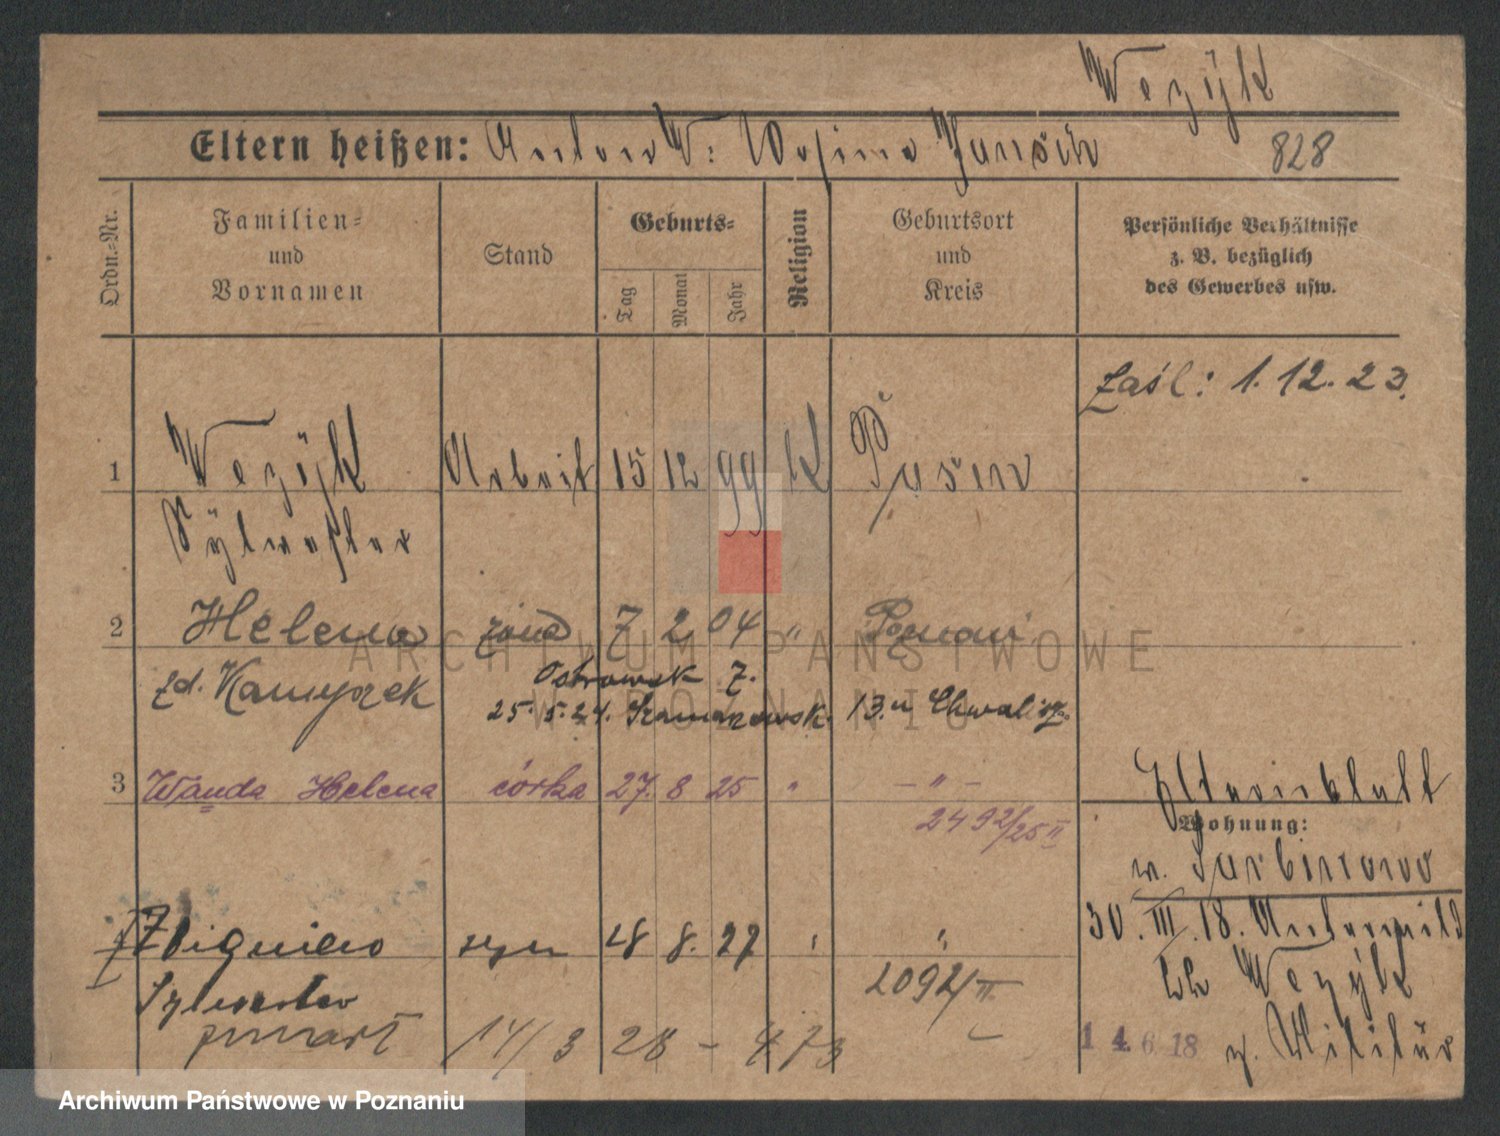 Wezÿk
Eltern heißen: Anton W. Rosina Jansch
828
Ordn.-Nr.
Familien- und Vornamen
Stand
Geburts-
Tag Monat Jahr
Religion
Geburtsort und Kreis
Persönliche Verhältnisse
z. B. bezüglich
des Gewerbes usw.
zaśl: 1.12.23.
1 Wezÿk Arbeit 15 12 99 K Posen
Sÿlvester
2 Helena żona 7 2 04 " Poznań
zd. Kamyszek
Ostrowsk 7.
25.5.24. 13.
3 Wanda Helena córka 27. 8 25 " - " -
2492/25 II
Elternblatt
Wohnung:
w.
Zbigniew syn 28 8. 27 " "
Sylwester
2092/II
zmarł 14/3 28 - 473
30.III.18.
Wezÿk
14 6 18 z. Militär
ARCHIWUM PAŃSTWOWE
W POZNANIU
Archiwum Państwowe w Poznaniu